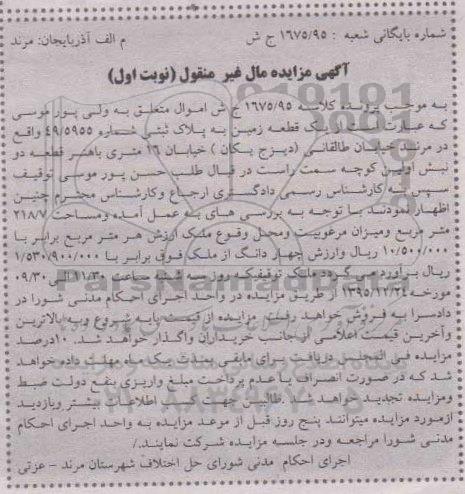 شماره بایگانی شعبه : ۱۶۷۵/۹۵ ج ش م الف آذربایجان: مرند
آگهی مزایده مال غیر منقول (نوبت اول)
به موجب پرونده کلاسه ۱۶۷۵/۹۵ ج ش اموال متعلق به ولی پور موسی
که عبارت است از یک قطعه زمین به پلاک ثبتی شماره ۴۹/۵۹۵۵ واقع
در مرند خیابان طالقانی (دیزج یکان) خیابان ۱۶ متری باهنر قطعه دو
نبش اولین کوچه سمت راست در قبال طلب حسن پور موسی توقیف
سپس به کارشناس رسمی دادگستری ارجاع وکارشناس محترم چنین
اظهار نمودند با توجه به بررسی های به عمل آمده ومساحت ۲۱۸/۷
متر مربع ومیزان مرغوبیت ومحل وقوع ملک ارزش هر متر مربع برابر با
۱۰/۵۰۰/۰۰۰ ریال وارزش چهار دانگ از ملک فوق برابر با ۱/۵۳۰/۹۰۰/۰۰۰
ریال برآورد می گردد ملک توقیفیکه روز سه شنبه ساعت ۱۱/۳۰ الی ۰۹/۳۰
مورخه ۱۳۹۵/۱۲/۲۴ از طریق مزایده در واحد اجرای احکام مدنی شورا در
دادسرا به فروش خواهد رفت. مزایده از قیمت پایه شروع و به بالاترین
وآخرین قیمت اعلامی از جانب خریداران واگذار خواهد شد. ۱۰درصد
مزایده فی المجلس دریافت برای مابقی بمدت یک ماه مهلت داده خواهد
شد که در صورت انصراف یا عدم پرداخت مبلغ واریزی بنفع دولت ضبط
ومزایده تجدید خواهد شد. طالبین جهت کسب اطلاعات بیشتر وبازدید
ازمورد مزایده میتوانند پنج روز قبل از موعد مزایده به واحد اجرای احکام
مدنی شورا مراجعه ودر جلسه مزایده شرکت نمایند./
اجرای احکام مدنی شورای حل اختلاف شهرستان مرند - عزتی
ParsNamadData